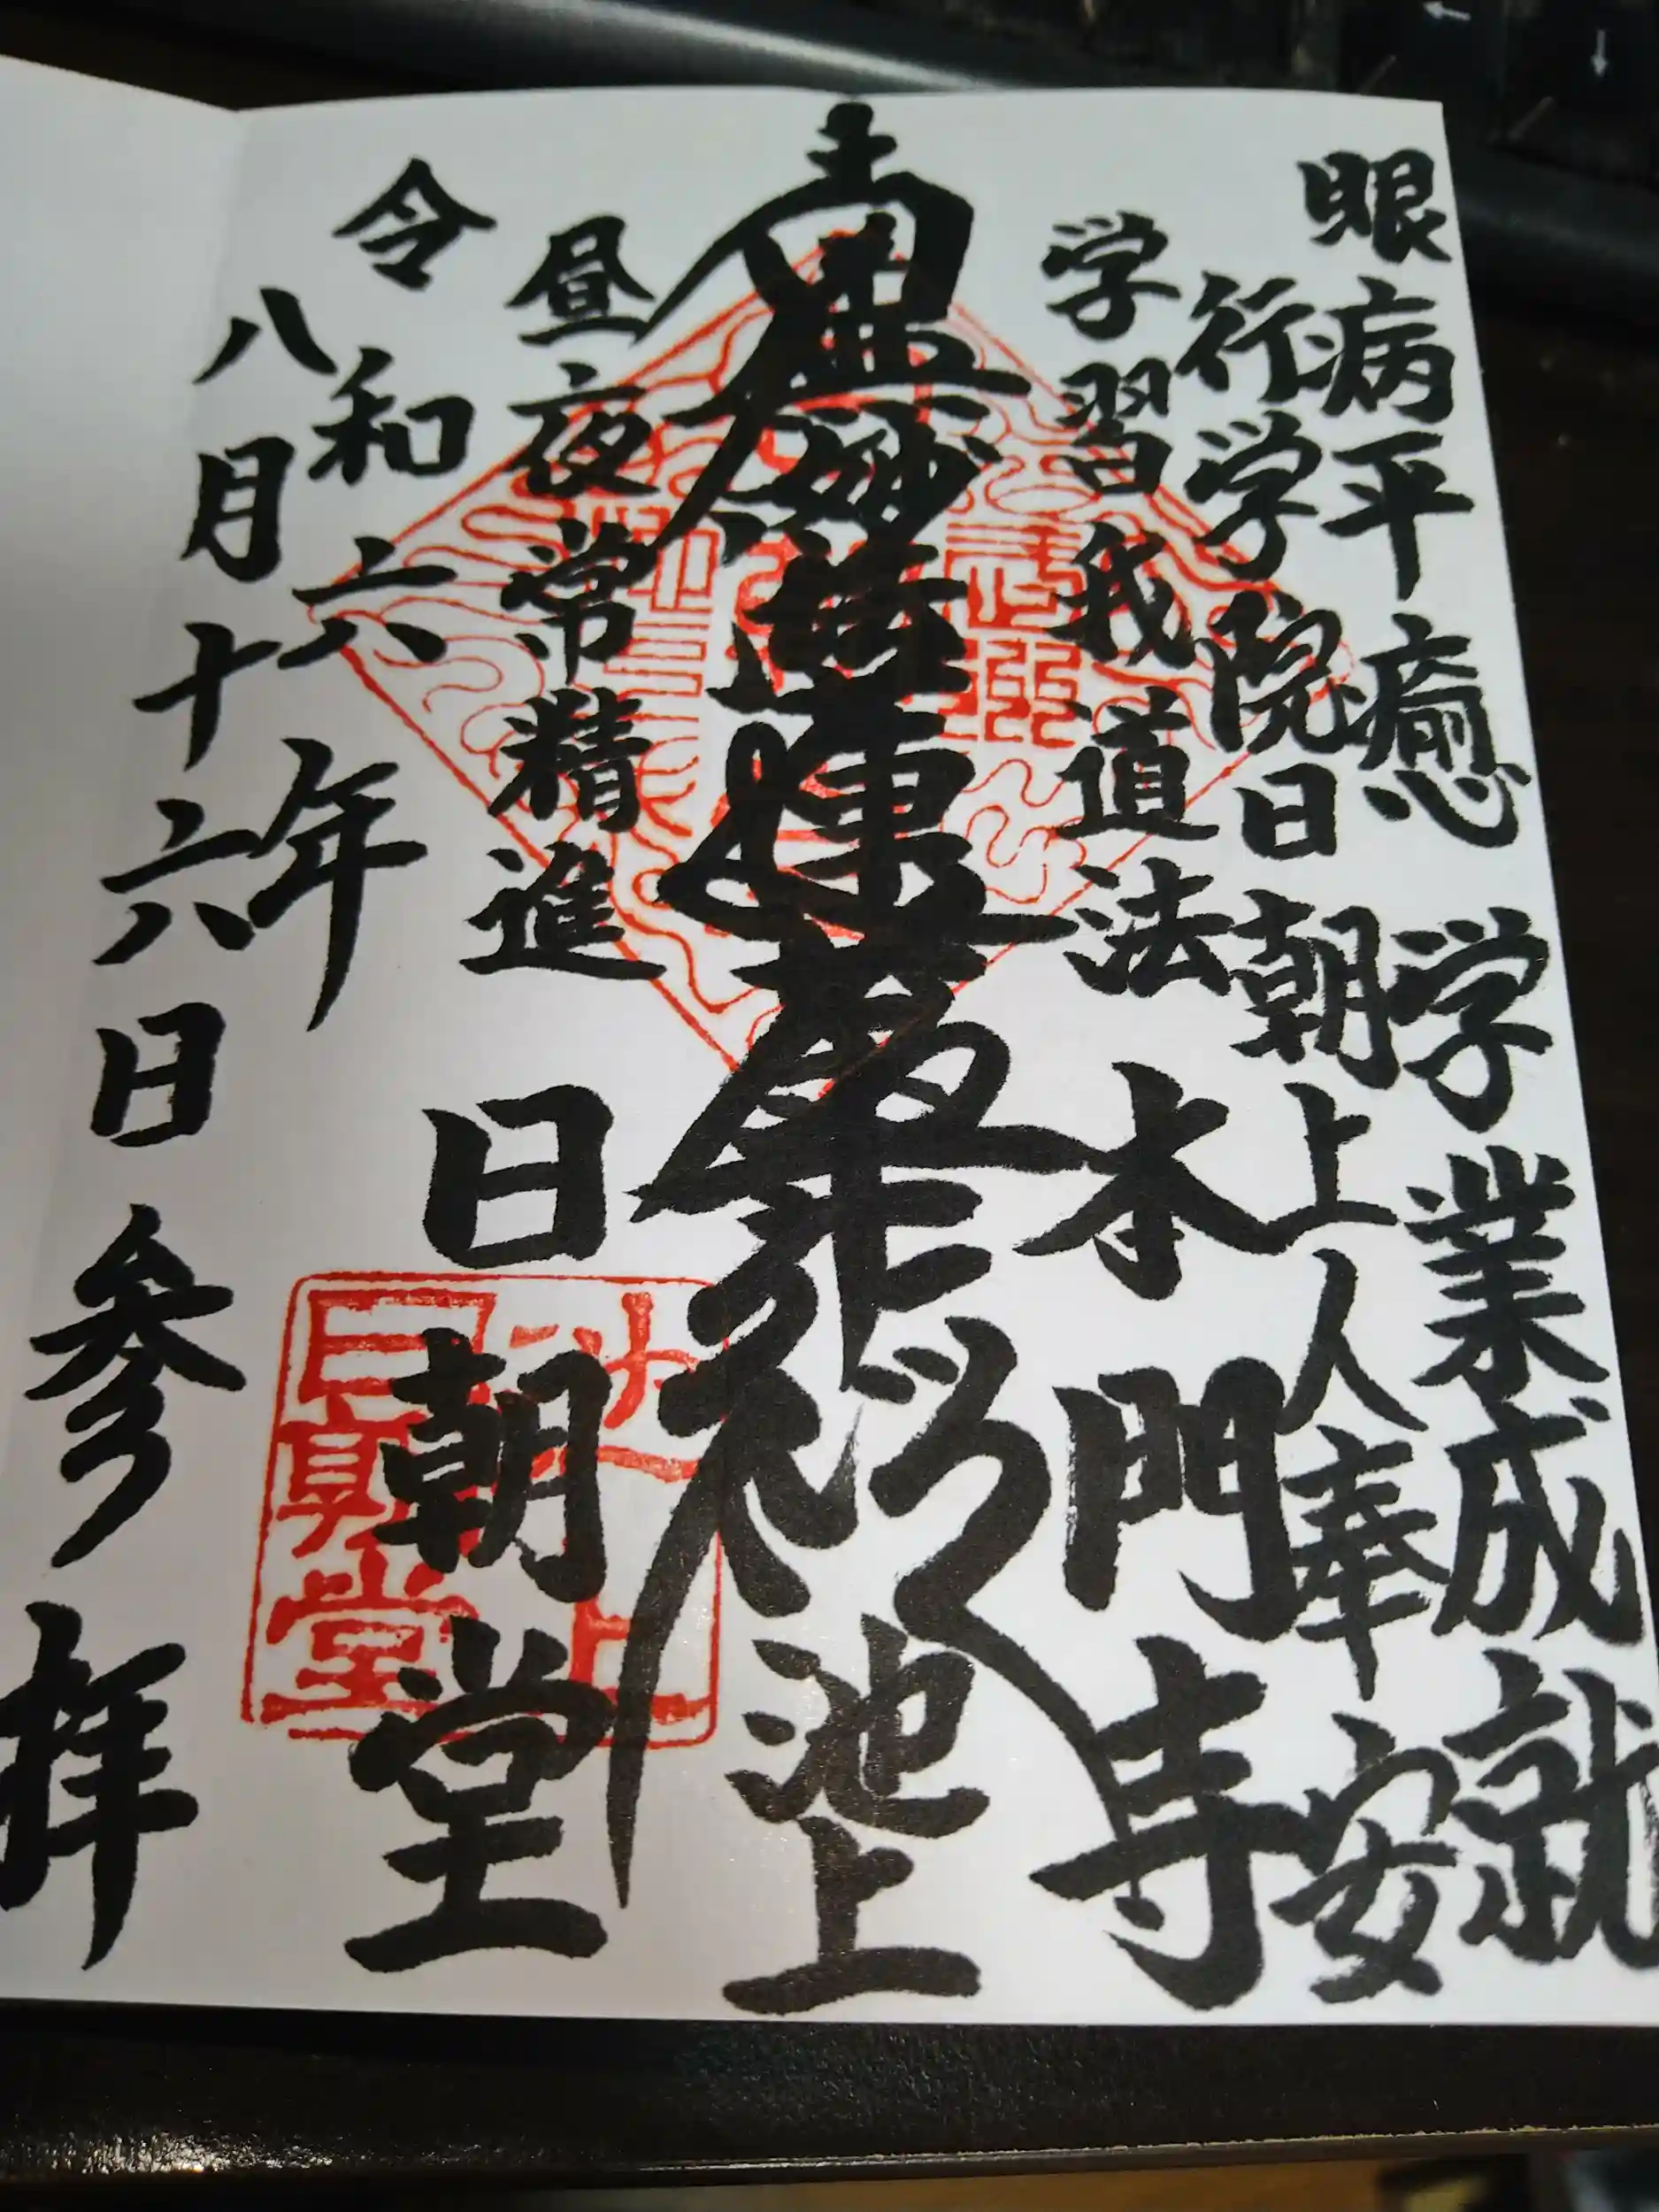 眼病平癒 学業成就
行学院日朝上人奉安
学習我道法 本門寺
南無妙法蓮華経 池上
昼夜常精進 日朝堂
令和六年
八月十六日参拝
池上
日朝堂